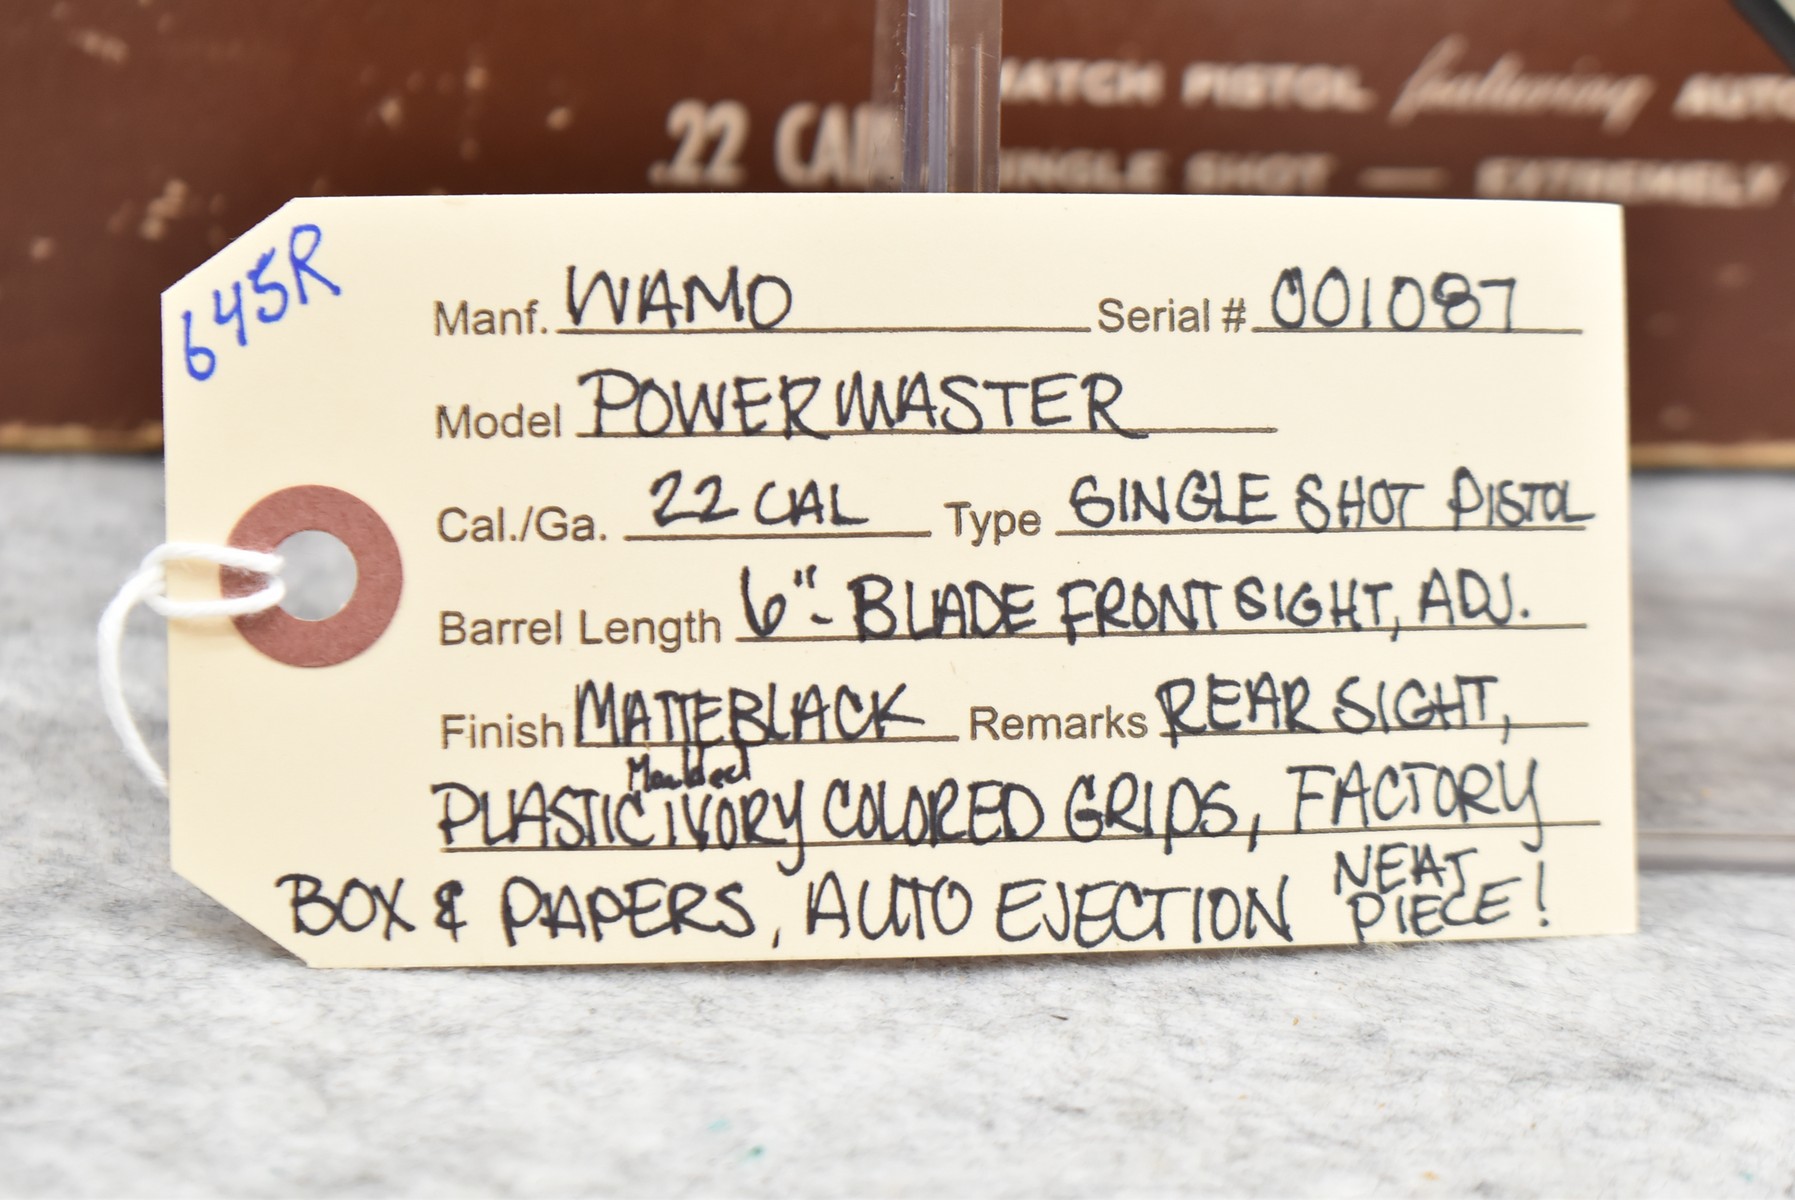 MATCH PISTOL featuring AUTO
.22 CAL
SINGLE SHOT — EXTREMELY
645R
Manf. WAMO Serial # 001087
Model POWERMASTER
Cal./Ga. 22 CAL Type SINGLE SHOT PISTOL
Barrel Length 6"- BLADE FRONT SIGHT, ADJ.
Finish MATTE BLACK Remarks REAR SIGHT,
Moulded
PLASTIC IVORY COLORED GRIPS, FACTORY
BOX & PAPERS, AUTO EJECTION NEAT
PIECE!